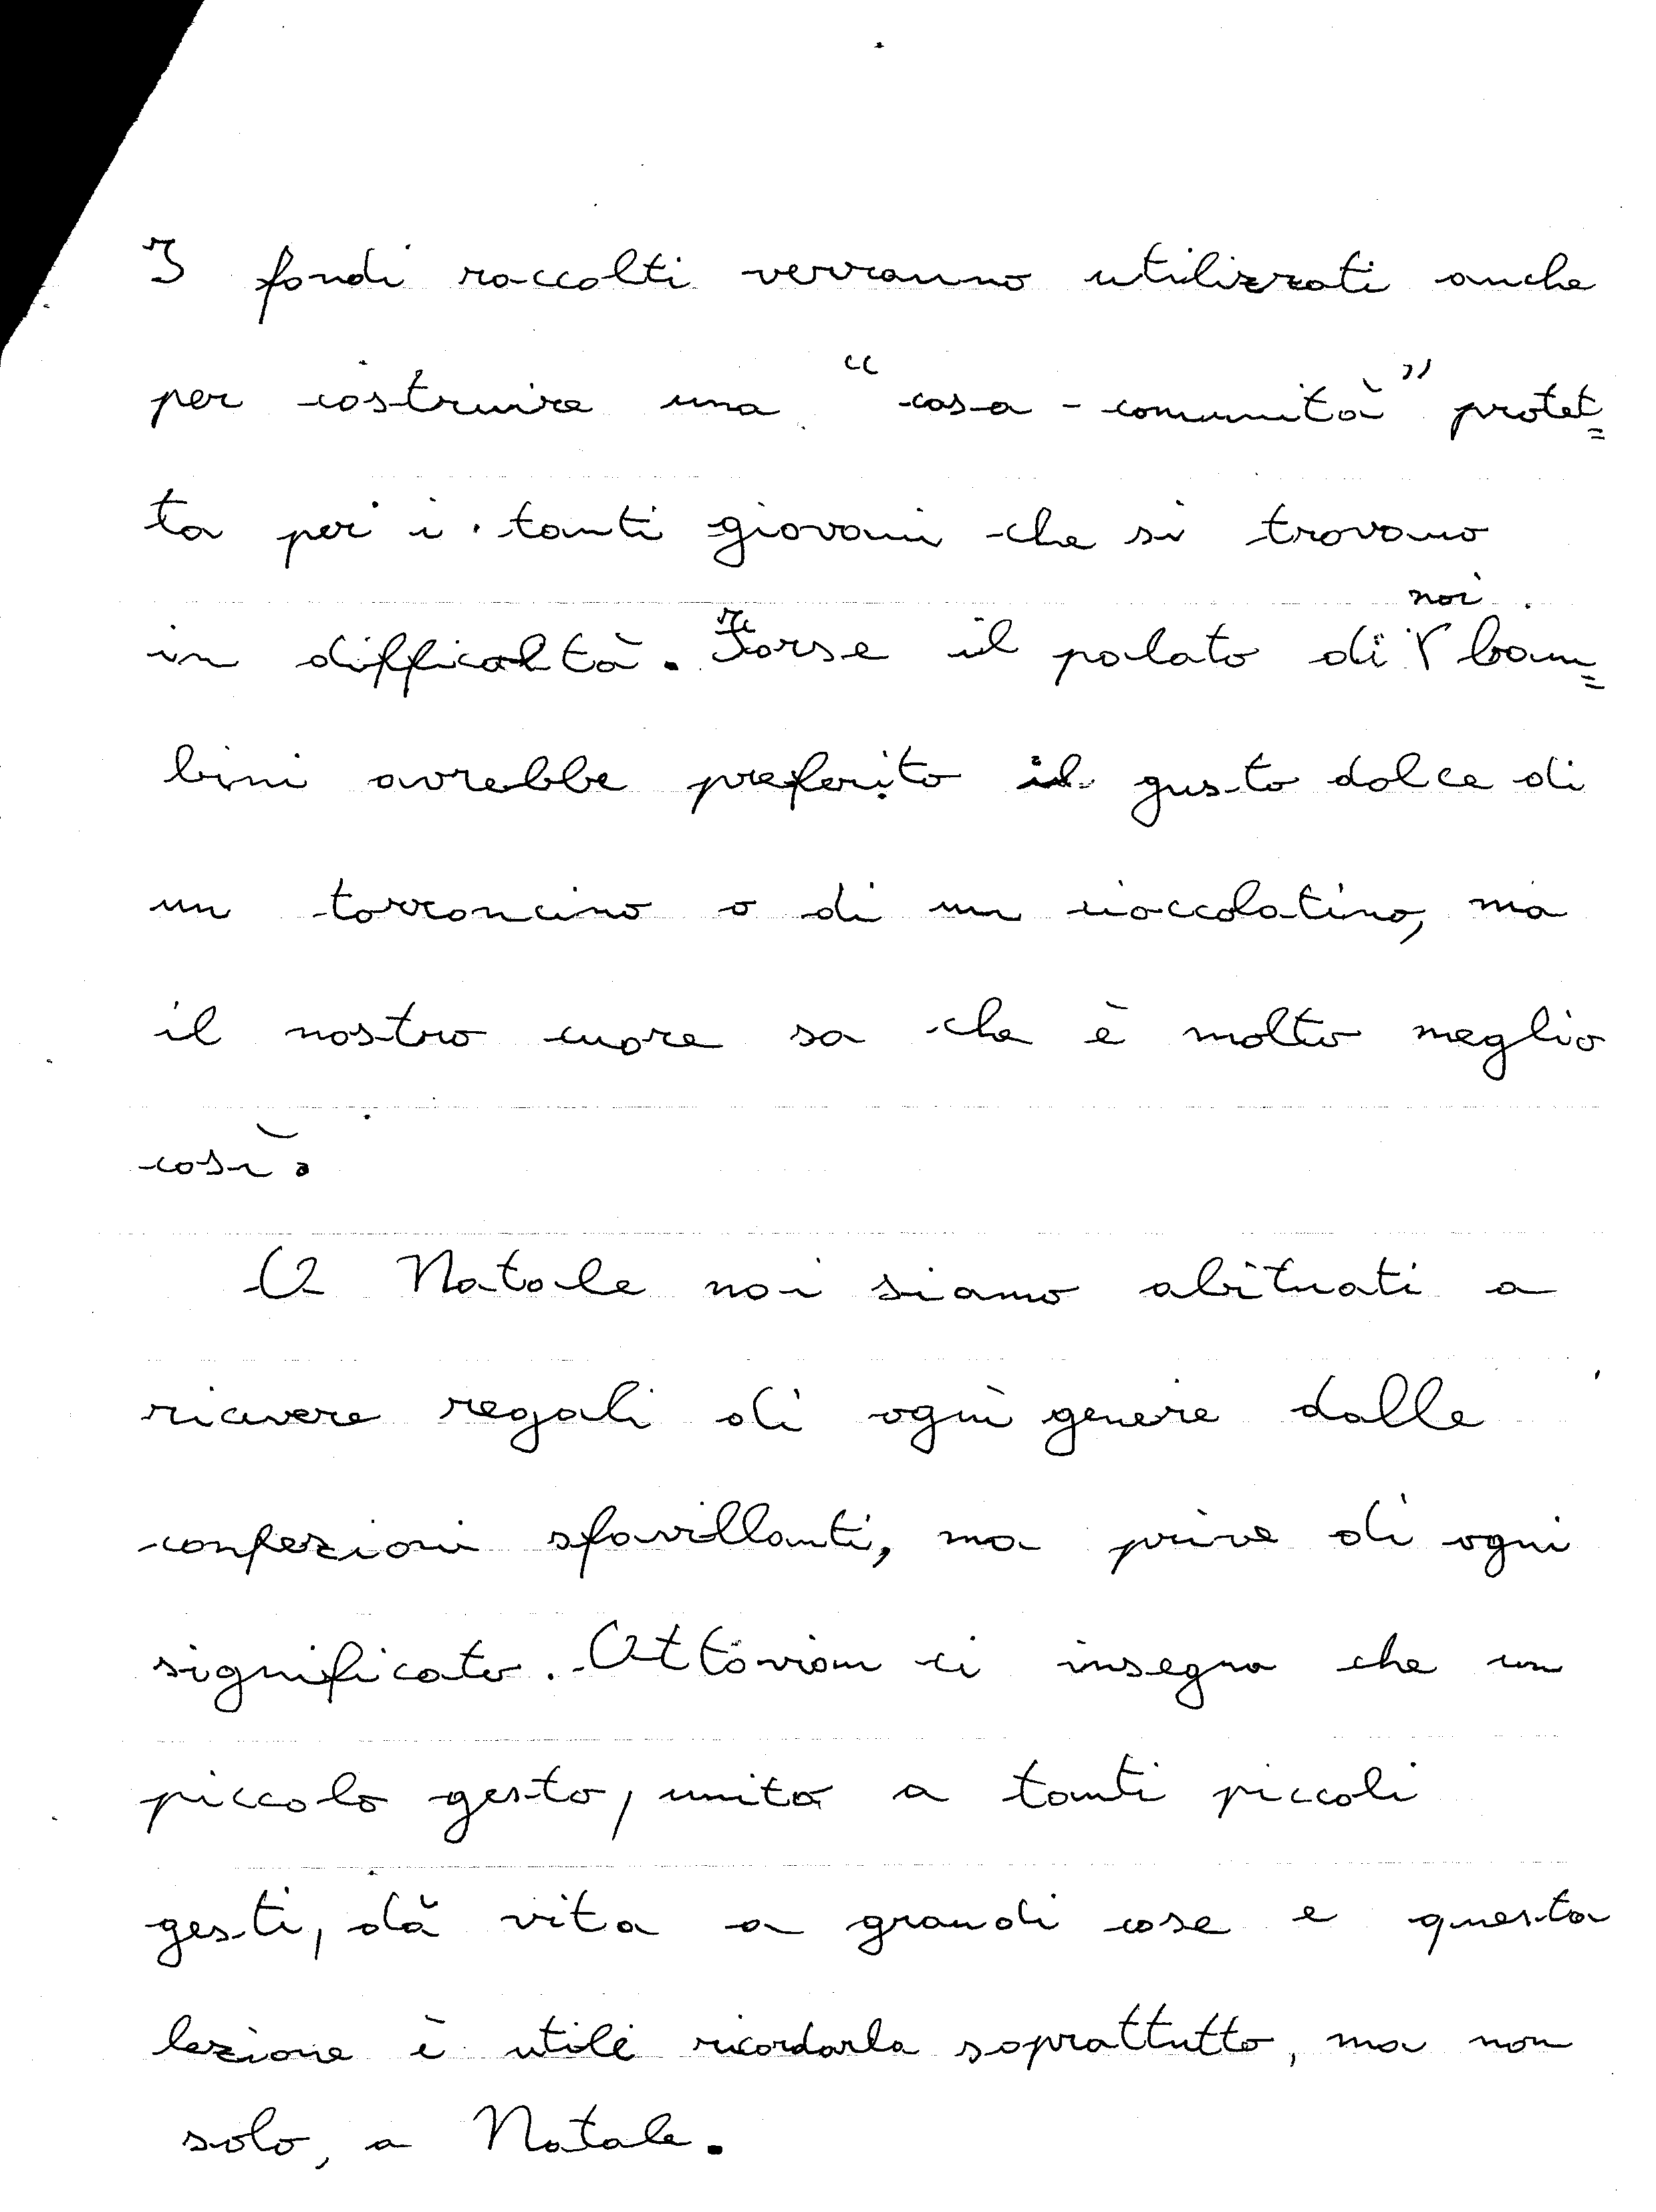 I fondi raccolti verranno utilizzati anche
per costruire una "casa-comunità" protet=
ta per i tanti giovani che si trovano
noi
in difficoltà. Forse il palato di bam=
bini avrebbe preferito il gusto dolce di
un torroncino o di un cioccolatino, ma
il nostro cuore sa che è molto meglio
così.
A Natale noi siamo abituati a
ricevere regali di ogni genere dalle
confezioni sfavillanti, ma prive di ogni
significato. Attoniam ci insegna che un
piccolo gesto, unito a tanti piccoli
gesti, dà vita a grandi cose e questa
lezione è utile ricordarla soprattutto, ma non
solo, a Natale.